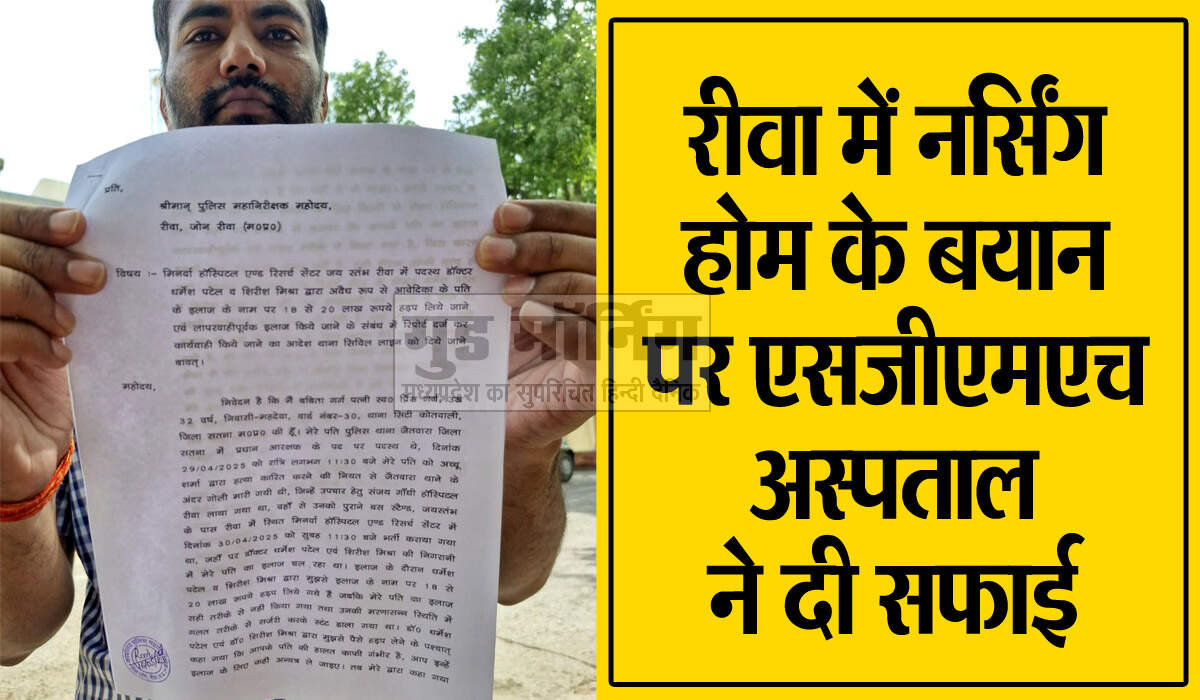 प्रति,
श्रीमान् पुलिस महानिरीक्षक महोदय,
रीवा, जोन रीवा (म०प्र०)
विषय :- मिनर्वा हॉस्पिटल एण्ड रिसर्च सेंटर जय स्तंभ रीवा में पदस्थ डॉक्टर
धर्मेश पटेल व शिरीश मिश्रा द्वारा अवैध रूप से आवेदिका के पति
के इलाज के नाम पर 18 से 20 लाख रूपये हड़प लिये जाने
एवं लापरवाहीपूर्वक इलाज किये जाने के संबंध में रिपोर्ट दर्ज कर
कार्यवाही किये जाने का आदेश थाना सिविल लाइन को दिये जाने
बावत्।
महोदय,
निवेदन है कि मैं बबिता गर्ग पत्नी स्व० प्रिंस गर्ग, उम्र
32 वर्ष, निवासी-महदेवा, वार्ड नंबर-30, थाना सिटी कोतवाली,
जिला सतना म०प्र० की हूँ। मेरे पति पुलिस थाना जैतवारा जिला
सतना में प्रधान आरक्षक के पद पर पदस्थ थे, दिनांक
29/04/2025 को रात्रि लगभग 11:30 बजे मेरे पति को अच्छू
शर्मा द्वारा हत्या कारित करने की नियत से जैतवारा थाने के
अंदर गोली मारी गयी थी, जिन्हें उपचार हेतु संजय गाँधी हॉस्पिटल
रीवा लाया गया था, वहाँ से उनको पुराने बस स्टैण्ड, जयस्तंभ
के पास रीवा में स्थित मिनर्वा हॉस्पिटल एण्ड रिसर्च सेंटर में
दिनांक 30/04/2025 को सुबह 11:30 बजे भर्ती कराया गया
था, जहाँ पर डॉक्टर धर्मेश पटेल एवं शिरीश मिश्रा की निगरानी
में मेरे पति का इलाज चल रहा था। इलाज के दौरान धर्मेश
पटेल व शिरीश मिश्रा द्वारा मुझसे इलाज के नाम पर 18 से
20 लाख रूपये हड़प लिये गये है जबकि मेरे पति का इलाज
सही तरीके से नही किया गया तथा उनकी मरणासन्न स्थिति में
गलत तरीके से सर्जरी करके स्टंट डाला गया था। डॉ० धर्मेश
पटेल एवं डॉ० शिरीश मिश्रा द्वारा मुझसे पैसे हड़प लेने के पश्चात्
कहा गया कि आपके पति की हालत काफी गंभीर है, आप इन्हें
इलाज के लिए कही अन्यत्र ले जाइए। तब मेरे द्वारा कहा गया
गुड मॉर्निंग
मध्यप्रदेश का सुपरिचित हिन्दी दैनिक
रीवा में नर्सिंग
होम के बयान
पर एसजीएमएच
अस्पताल
ने दी सफाई